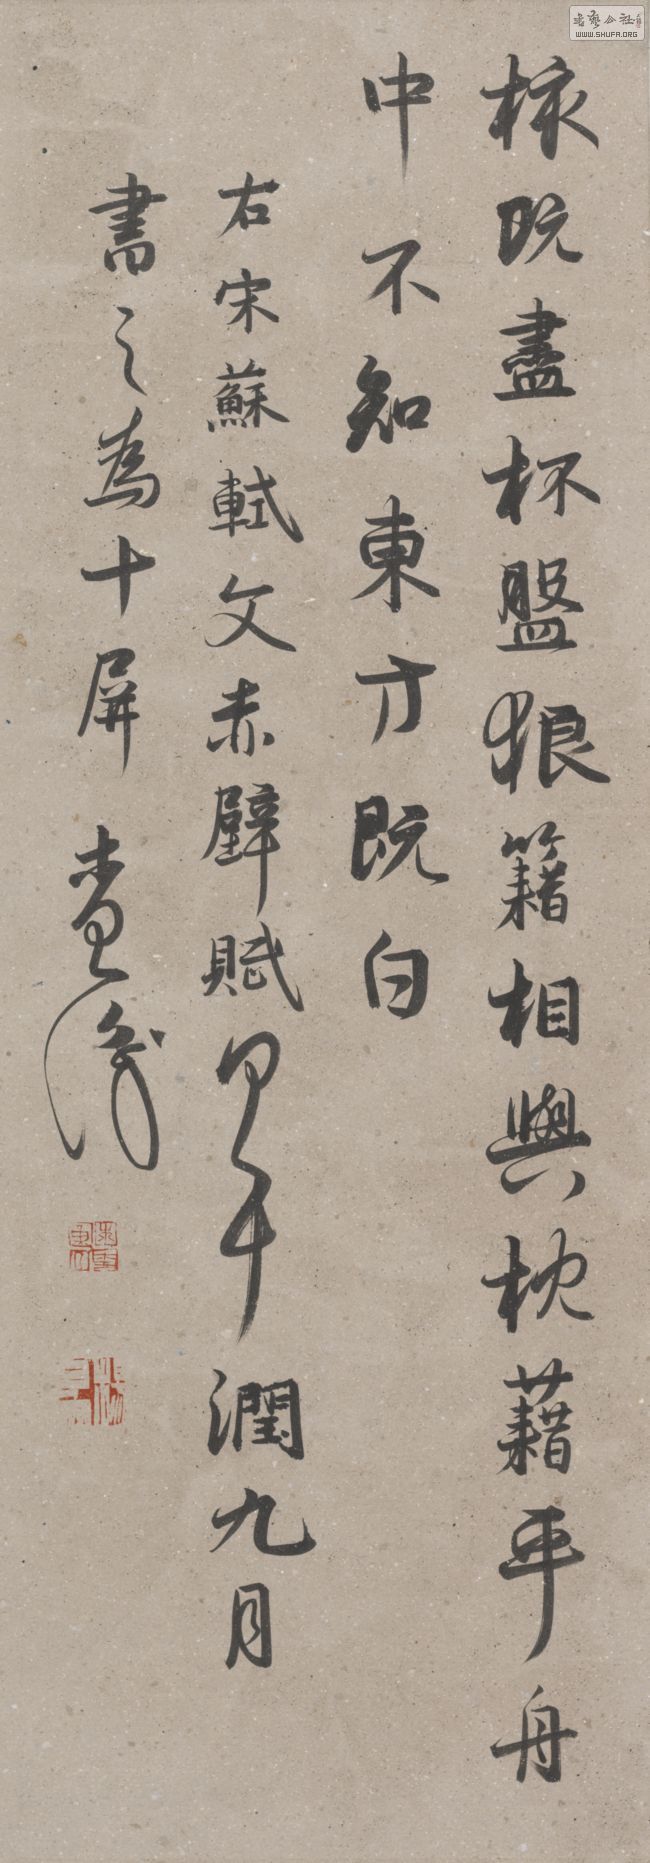 核既盡杯盤狼籍相與枕藉乎舟
中不知東方既白
右宋蘇軾文赤壁賦甲午潤九月
書之為十屏
WWW.SHUFA.ORG